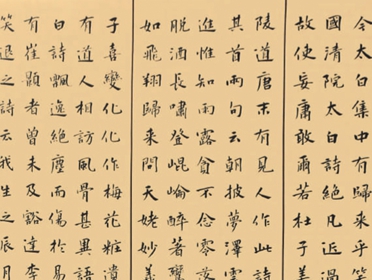 今太白集中有歸來乎
國清院太白詩絕凡近過
故使妄庸敢爾若杜子美
陵道唐末有見人作此詩
其首兩句云朝披夢澤雲
進惟知雨露貪不念零落
脫洒長嘯登崐崘醉著鸞
如飛翔歸來問天姥妙義
子喜變化化作梅花粧遺
有道人相訪風骨甚異語
白詩飄逸絕塵而傷於易
有崔顥者曾未及豁達李
笑退之詩云我生之辰月